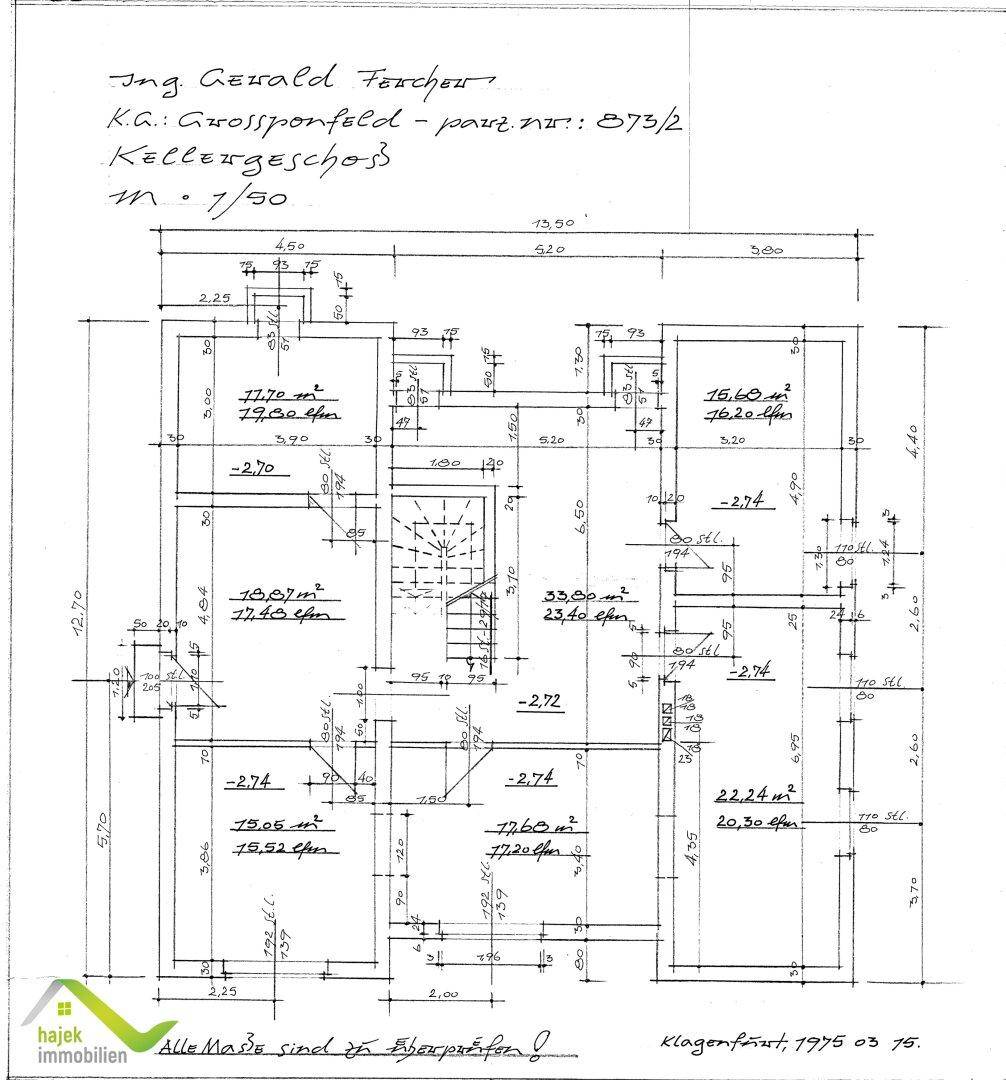 Ing. Gerald Fercher
K.G.: Grossponfeld - parz.nr.: 873/2
Kellergeschoß
M • 1/50
13,50
4,50 5,20 3,80
75 93 75
15
50
2,25
83 Stl.
51
93 75
75 93
15
50
1,30
5
83 Stl.
51
83 Stl.
51
5
47
47
30
3,00
11,70 m²
19,80 lfm
15,68 m²
16,20 lfm
30
30
1,50
30 3,90 30
5,20
30 3,20 30
4,40
-2,70
80 Stl.
194
1,80 20
20
6,50
10 20
-2,74
4,90
30
85
80 Stl.
194
95
1,30
110 Stl.
80
5
1,24
3
12,70
18,87 m²
17,48 lfm
4,84
3,10
16 Stl.
33,80 m²
23,40 lfm
95
25
24 6
2,60
50 20 10
5
90
5
80 Stl.
194
-2,74
1,20
100 Stl.
205
15
1,10
5
95 10 95
1,00
50
-2,72
110 Stl.
80
18
18
13
18
25
80 Stl.
194
80 Stl.
194
10
10
6,95
2,60
-2,74
90 40
85
1,50
-2,74
22,24 m²
20,30 lfm
110 Stl.
80
5,70
15,05 m²
15,52 lfm
3,86
1,20
17,68 m²
17,20 lfm
3,40
4,35
90
192 Stl.
139
192 Stl.
139
3,70
24
6
30
80
30
3 1,96 3
30
2,25
2,00
hajek
immobilien
Alle Maße sind zu überprüfen!
Klagenfurt, 1975 03 15.